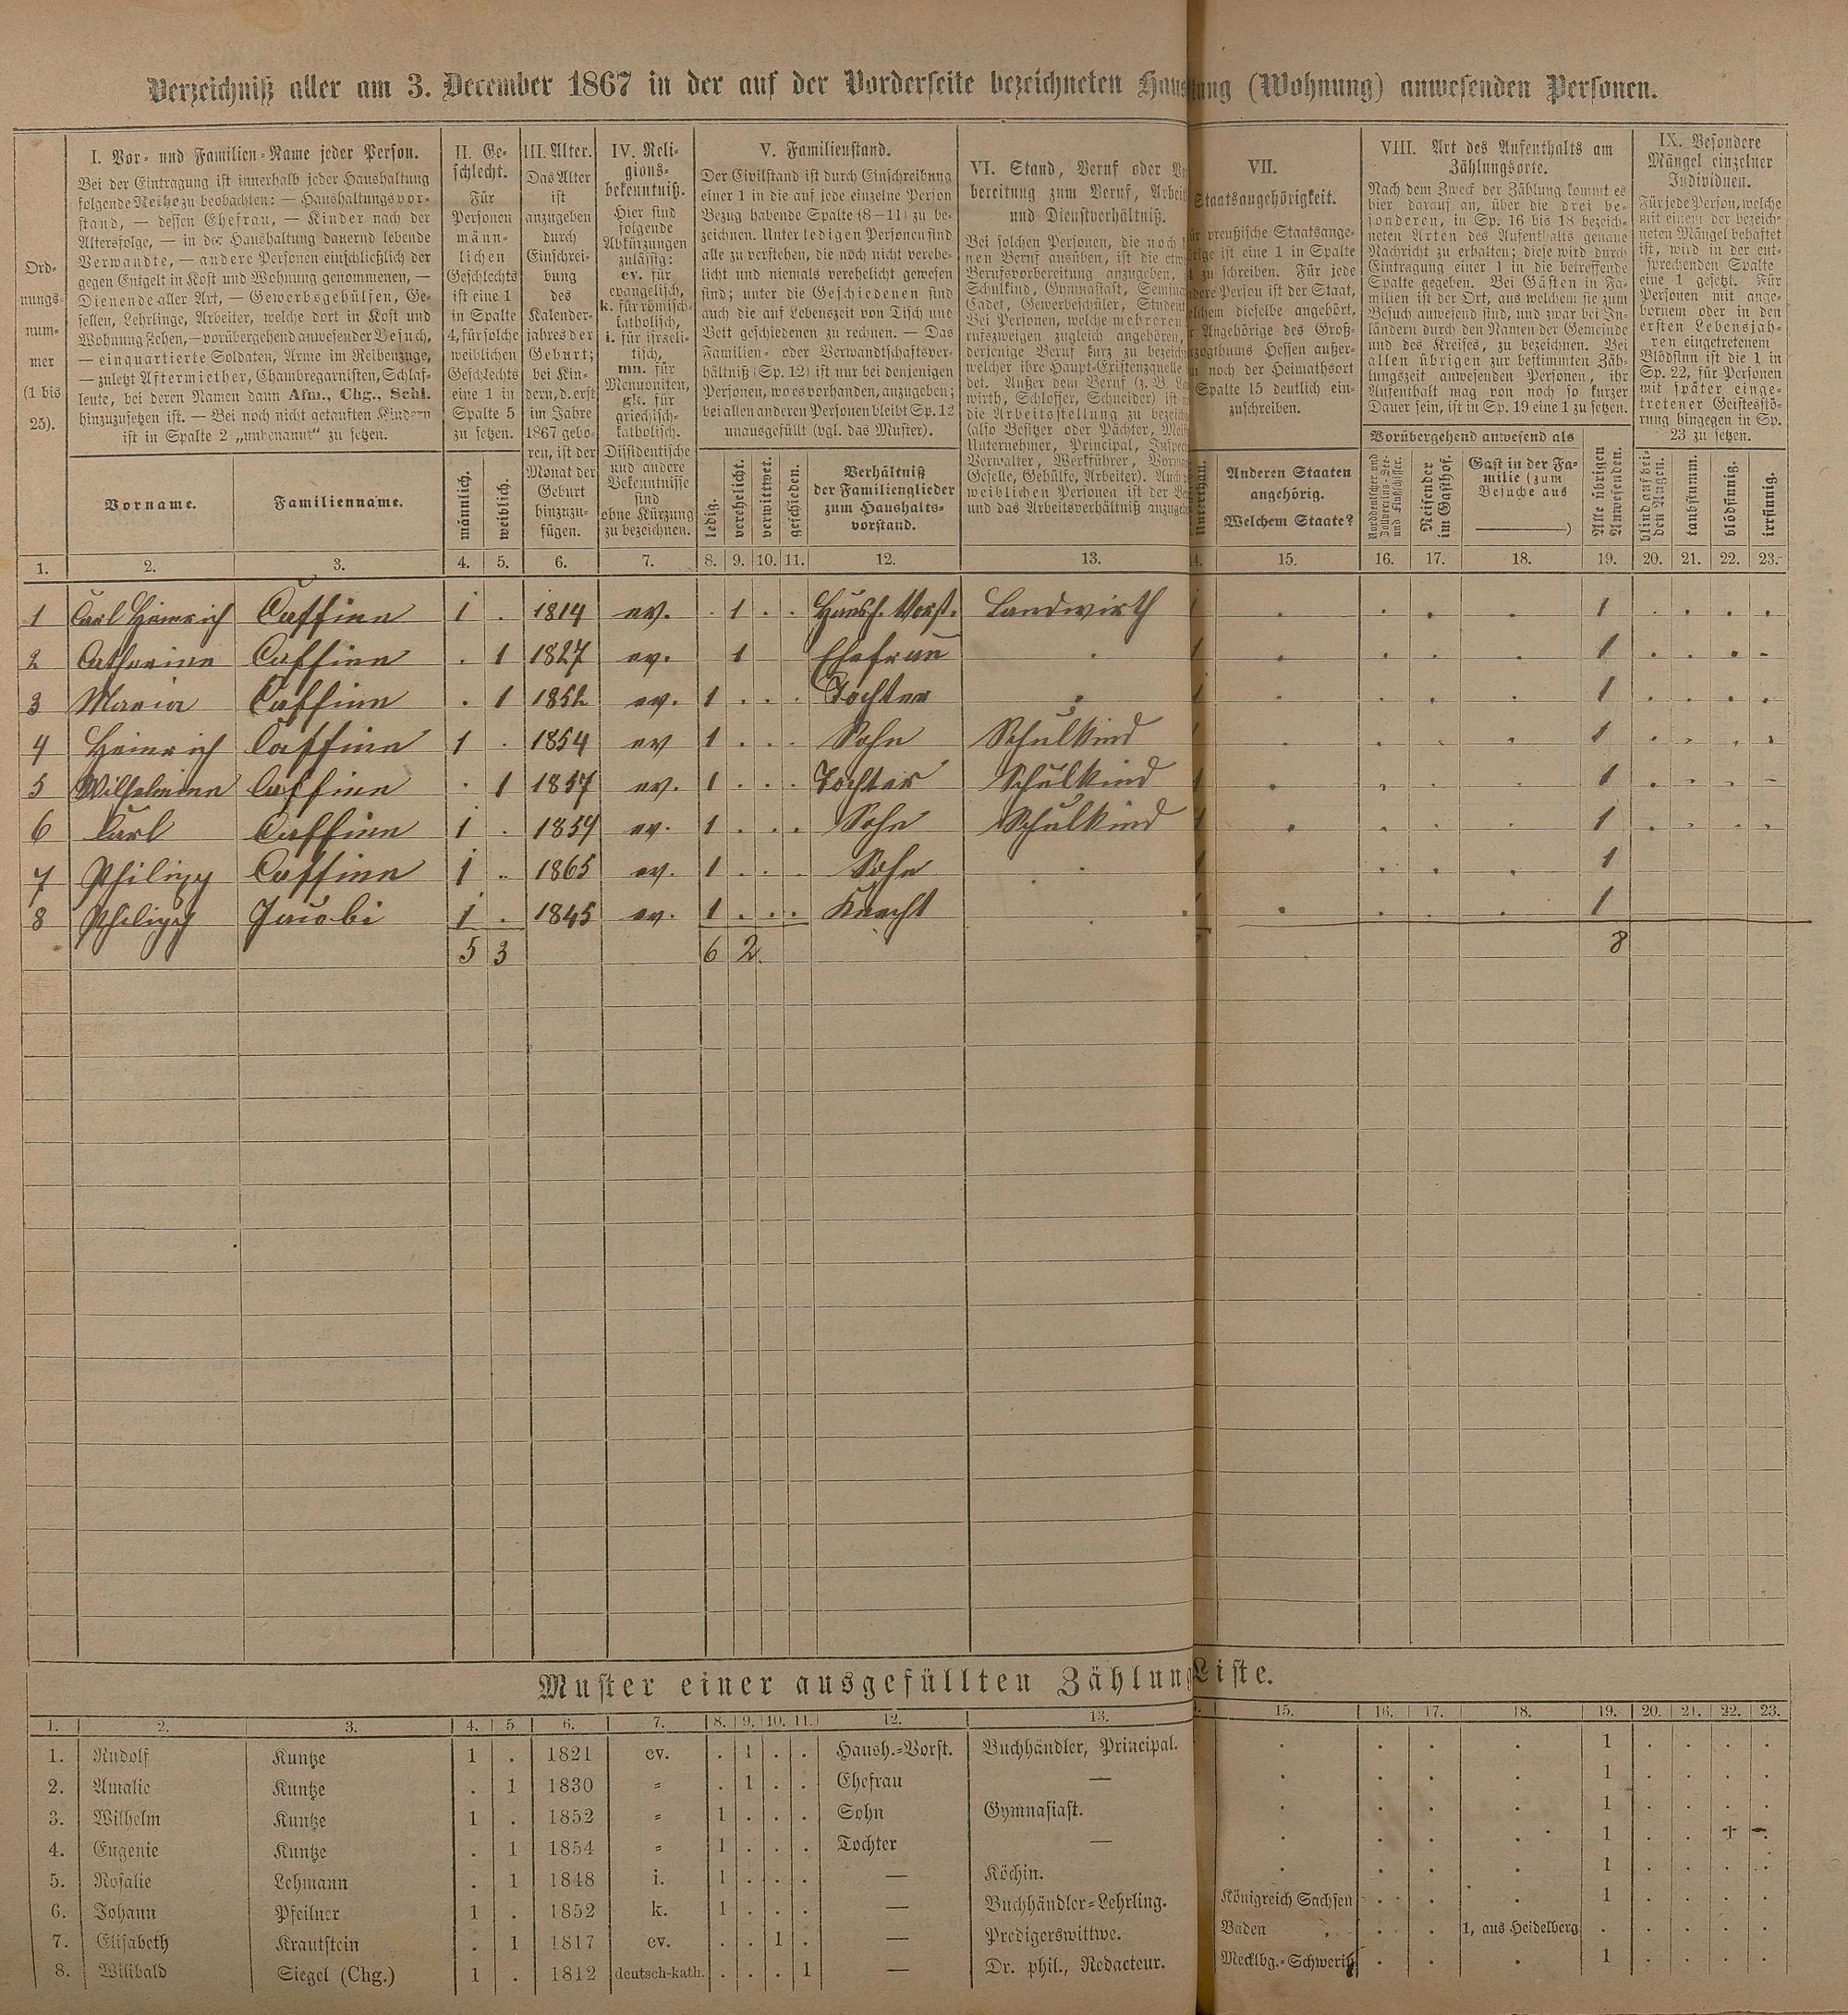 Verzeichniß aller am 3. December 1867 in der auf der Vorderseite bezeichneten Haus tung (Wohnung) anwesenden Personen.
Ord-
nungs-
num-
mer
(1 bis
25).
I. Vor- und Familien-Name jeder Person.
Bei der Eintragung ist innerhalb jeder Haushaltung
folgende Reihe zu beobachten: — Haushaltungsvor-
stand, — dessen Ehefrau, — Kinder nach der
Altersfolge, — in der Haushaltung dauernd lebende
Verwandte, — andere Personen einschließlich der
gegen Entgelt in Kost und Wohnung genommenen, —
Dienende aller Art, — Gewerbsgehülfen, Ge-
sellen, Lehrlinge, Arbeiter, welche dort in Kost und
Wohnung stehen, — vorübergehend anwesender Besuch,
— einquartierte Soldaten, Arme im Reihenzuge,
— zuletzt Aftermiether, Chambregarnisten, Schlaf-
leute, bei deren Namen dann Afm., Chg., Schl.
hinzuzusetzen ist. — Bei noch nicht getauften Kindern
ist in Spalte 2 „unbenannt“ zu setzen.
Vorname.
Familienname.
II. Ge-
schlecht.
Für
Personen
männ-
lichen
Geschlechts
ist eine 1
in Spalte
4, für solche
weiblichen
Geschlechts
eine 1 in
Spalte 5
zu setzen.
männlich.
weiblich.
III. Alter.
Das Alter
ist
anzugeben
durch
Einschrei-
bung
des
Kalender-
jahres der
Geburt;
bei Kin-
dern, d. erst
im Jahre
1867 gebo-
ren, ist der
Monat der
Geburt
hinzuzu-
fügen.
IV. Reli-
gions-
bekenntniß.
Hier sind
folgende
Abkürzungen
zulässig:
ev. für
evangelisch,
k. für römisch-
katholisch,
i. für israeli-
tisch,
mn. für
Mennoniten,
gk. für
griechisch-
katholisch.
Dissidentische
und andere
Bekenntnisse
sind
ohne Kürzung
zu bezeichnen.
V. Familienstand.
Der Civilstand ist durch Einschreibung
einer 1 in die auf jede einzelne Person
Bezug habende Spalte (8—11) zu be-
zeichnen. Unter ledigen Personen sind
alle zu verstehen, die noch nicht verehe-
licht und niemals verehelicht gewesen
sind; unter die Geschiedenen sind
auch die auf Lebenszeit von Tisch und
Bett geschiedenen zu rechnen. — Das
Familien- oder Verwandtschaftsver-
hältniß (Sp. 12) ist nur bei denjenigen
Personen, wo es vorhanden, anzugeben;
bei allen anderen Personen bleibt Sp. 12
unausgefüllt (vgl. das Muster).
ledig.
verehelicht.
verwittwet.
geschieden.
Verhältniß
der Familienglieder
zum Haushalts-
vorstand.
VI. Stand, Beruf oder
bereitung zum Beruf, Arbeit
und Dienstverhältniß.
Bei solchen Personen, die noch
nen Beruf ausüben, ist die
Berufsvorbereitung anzugeben,
Schulkind, Gymnasiast,
Cadet, Gewerbeschüler, Student
Bei Personen, welche mehreren
rufszweigen zugleich angehören,
derjenige Beruf kurz zu
welcher ihre Haupt-Existenzquelle
det. Außer dem Beruf (z. B.
wirth, Schlosser, Schneider) ist
die Arbeitsstellung zu
(also Besitzer oder Pächter,
Unternehmer, Principal,
Verwalter, Werkführer,
Geselle, Gehülfe, Arbeiter).
weiblichen Personen ist der
und das Arbeitsverhältniß
VII.
Staatsangehörigkeit.
preußische Staatsange-
ist eine 1 in Spalte
zu schreiben. Für jede
Person ist der Staat,
dieselbe angehört,
Angehörige des Groß-
Hessen außer-
noch der Heimathsort
Spalte 15 deutlich ein-
zuschreiben.
Anderen Staaten
angehörig.
Welchem Staate?
VIII. Art des Aufenthalts am
Zählungsorte.
Nach dem Zweck der Zählung kommt es
hier darauf an, über die drei be-
sonderen, in Sp. 16 bis 18 bezeich-
neten Arten des Aufenthalts genaue
Nachricht zu erhalten; diese wird durch
Eintragung einer 1 in die betreffende
Spalte gegeben. Bei Gästen in Fa-
milien ist der Ort, aus welchem sie zum
Besuch anwesend sind, und zwar bei In-
ländern durch den Namen der Gemeinde
und des Kreises, zu bezeichnen. Bei
allen übrigen zur bestimmten Zäh-
lungszeit anwesenden Personen, ihr
Aufenthalt mag von noch so kurzer
Dauer sein, ist in Sp. 19 eine 1 zu setzen.
Vorübergehend anwesend als
Norddeutscher und
Zollvereins-See-
und Flußschiffer.
Reisender
im Gasthof.
Gast in der Fa-
milie (zum
Besuche aus
———)
Alle übrigen
Anwesenden.
IX. Besondere
Mängel einzelner
Individuen.
Für jede Person, welche
mit einem der bezeich-
neten Mängel behaftet
ist, wird in der ent-
sprechenden Spalte
eine 1 gesetzt. Für
Personen mit ange-
bornem oder in den
ersten Lebensjah-
ren eingetretenem
Blödsinn ist die 1 in
Sp. 22, für Personen
mit später einge-
tretener Geistesstö-
rung hingegen in Sp.
23 zu setzen.
blind auf bei-
den Augen.
taubstumm.
blödsinnig.
irrsinnig.
1. 2. 3. 4. 5. 6. 7. 8. 9. 10. 11. 12. 13. 4. 15. 16. 17. 18. 19. 20. 21. 22. 23.
1 Carl Heinrich Caffine 1 . 1814 ev. . 1 . . Haush. Vorst. Landwirth 1 . . . . 1 . . . .
2 Catharine Caffine . 1 1827 ev. 1 Ehefrau . 1 . . . . 1 . . . .
3 Maria Caffine . 1 1852 ev. 1 . . . Tochter . 1 . . . . 1 . . . .
4 Heinrich Caffine 1 . 1854 ev 1 . . . Sohn Schulkind 1 . . . . 1 . . . .
5 Wilhelmine Caffine . 1 1857 ev. 1 . . . Tochter Schulkind 1 . . . . 1 . . . .
6 Carl Caffine 1 . 1859 ev. 1 . . . Sohn Schulkind 1 . . . . 1 . . . .
7 Philipp Caffine 1 . 1865 ev. 1 . . . Sohn . 1 . . . 1
8 Philipp Jacobi 1 . 1845 ev. 1 . . . Knecht . 1 . . . . 1
5 3 6 2 8
Muster einer ausgefüllten Zählung Liste.
1. 2. 3. 4. 5 6. 7. 8. 9. 10. 11. 12. 13. 15. 16. 17. 18. 19. 20. 21. 22. 23.
1. Rudolf Kuntze 1 . 1821 ev. . 1 . . Haush.-Vorst. Buchhändler, Principal. . . . . 1 . . . .
2. Amalie Kuntze . 1 1830 = . 1 . . Ehefrau — . . . . 1 . . . .
3. Wilhelm Kuntze 1 . 1852 = 1 . . . Sohn Gymnasiast. . . . . 1 . . . .
4. Eugenie Kuntze . 1 1854 = 1 . . . Tochter — . . . . 1 . . 1 .
5. Rosalie Lehmann . 1 1848 i. 1 . . . — Köchin. . . . . 1 . . . .
6. Johann Pfeilner 1 . 1852 k. 1 . . . — Buchhändler-Lehrling. Königreich Sachsen . . . 1 . . . .
7. Elisabeth Krautstein . 1 1817 ev. . . 1 . — Predigerswittwe. Baden . . 1, aus Heidelberg . . . . .
8. Wilibald Siegel (Chg.) 1 . 1812 deutsch-kath. . . . 1 — Dr. phil., Redacteur. Mecklbg.-Schwerin . . . 1 . . . .